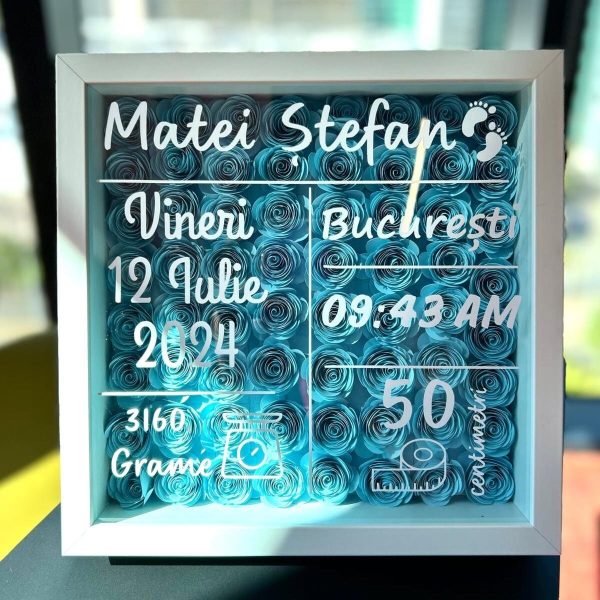 Matei Ștefan
Vineri
12 Iulie
2024
București
09:43 AM
3160
Grame
50
centimetri